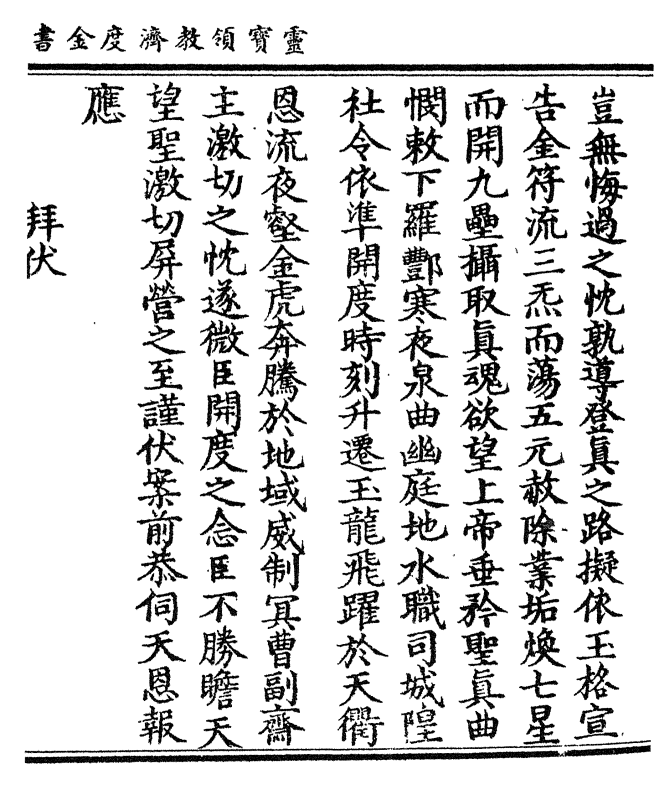 靈寶領教濟度金書
豈無悔過之忱孰導登真之路擬依玉格宣
告金符流三炁而蕩五元赦除業垢煥七星
而開九壘攝取真魂欲望上帝垂矜聖真曲
憫敕下羅酆寒夜泉曲幽庭地水職司城隍
社令依準開度時刻升遷玉龍飛躍於天衢
恩流夜壑金虎奔騰於地域威制冥曹副齋
主激切之忱遂微臣開度之念臣不勝瞻天
望聖激切屏營之至謹伏案前恭伺天恩報
應
拜伏